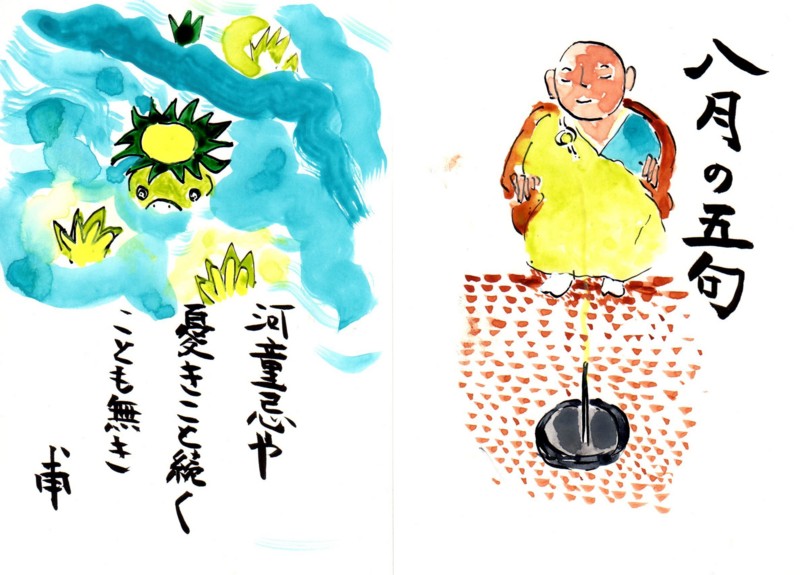 八月の五句
河童忌や
憂きこと続く
ことも無き